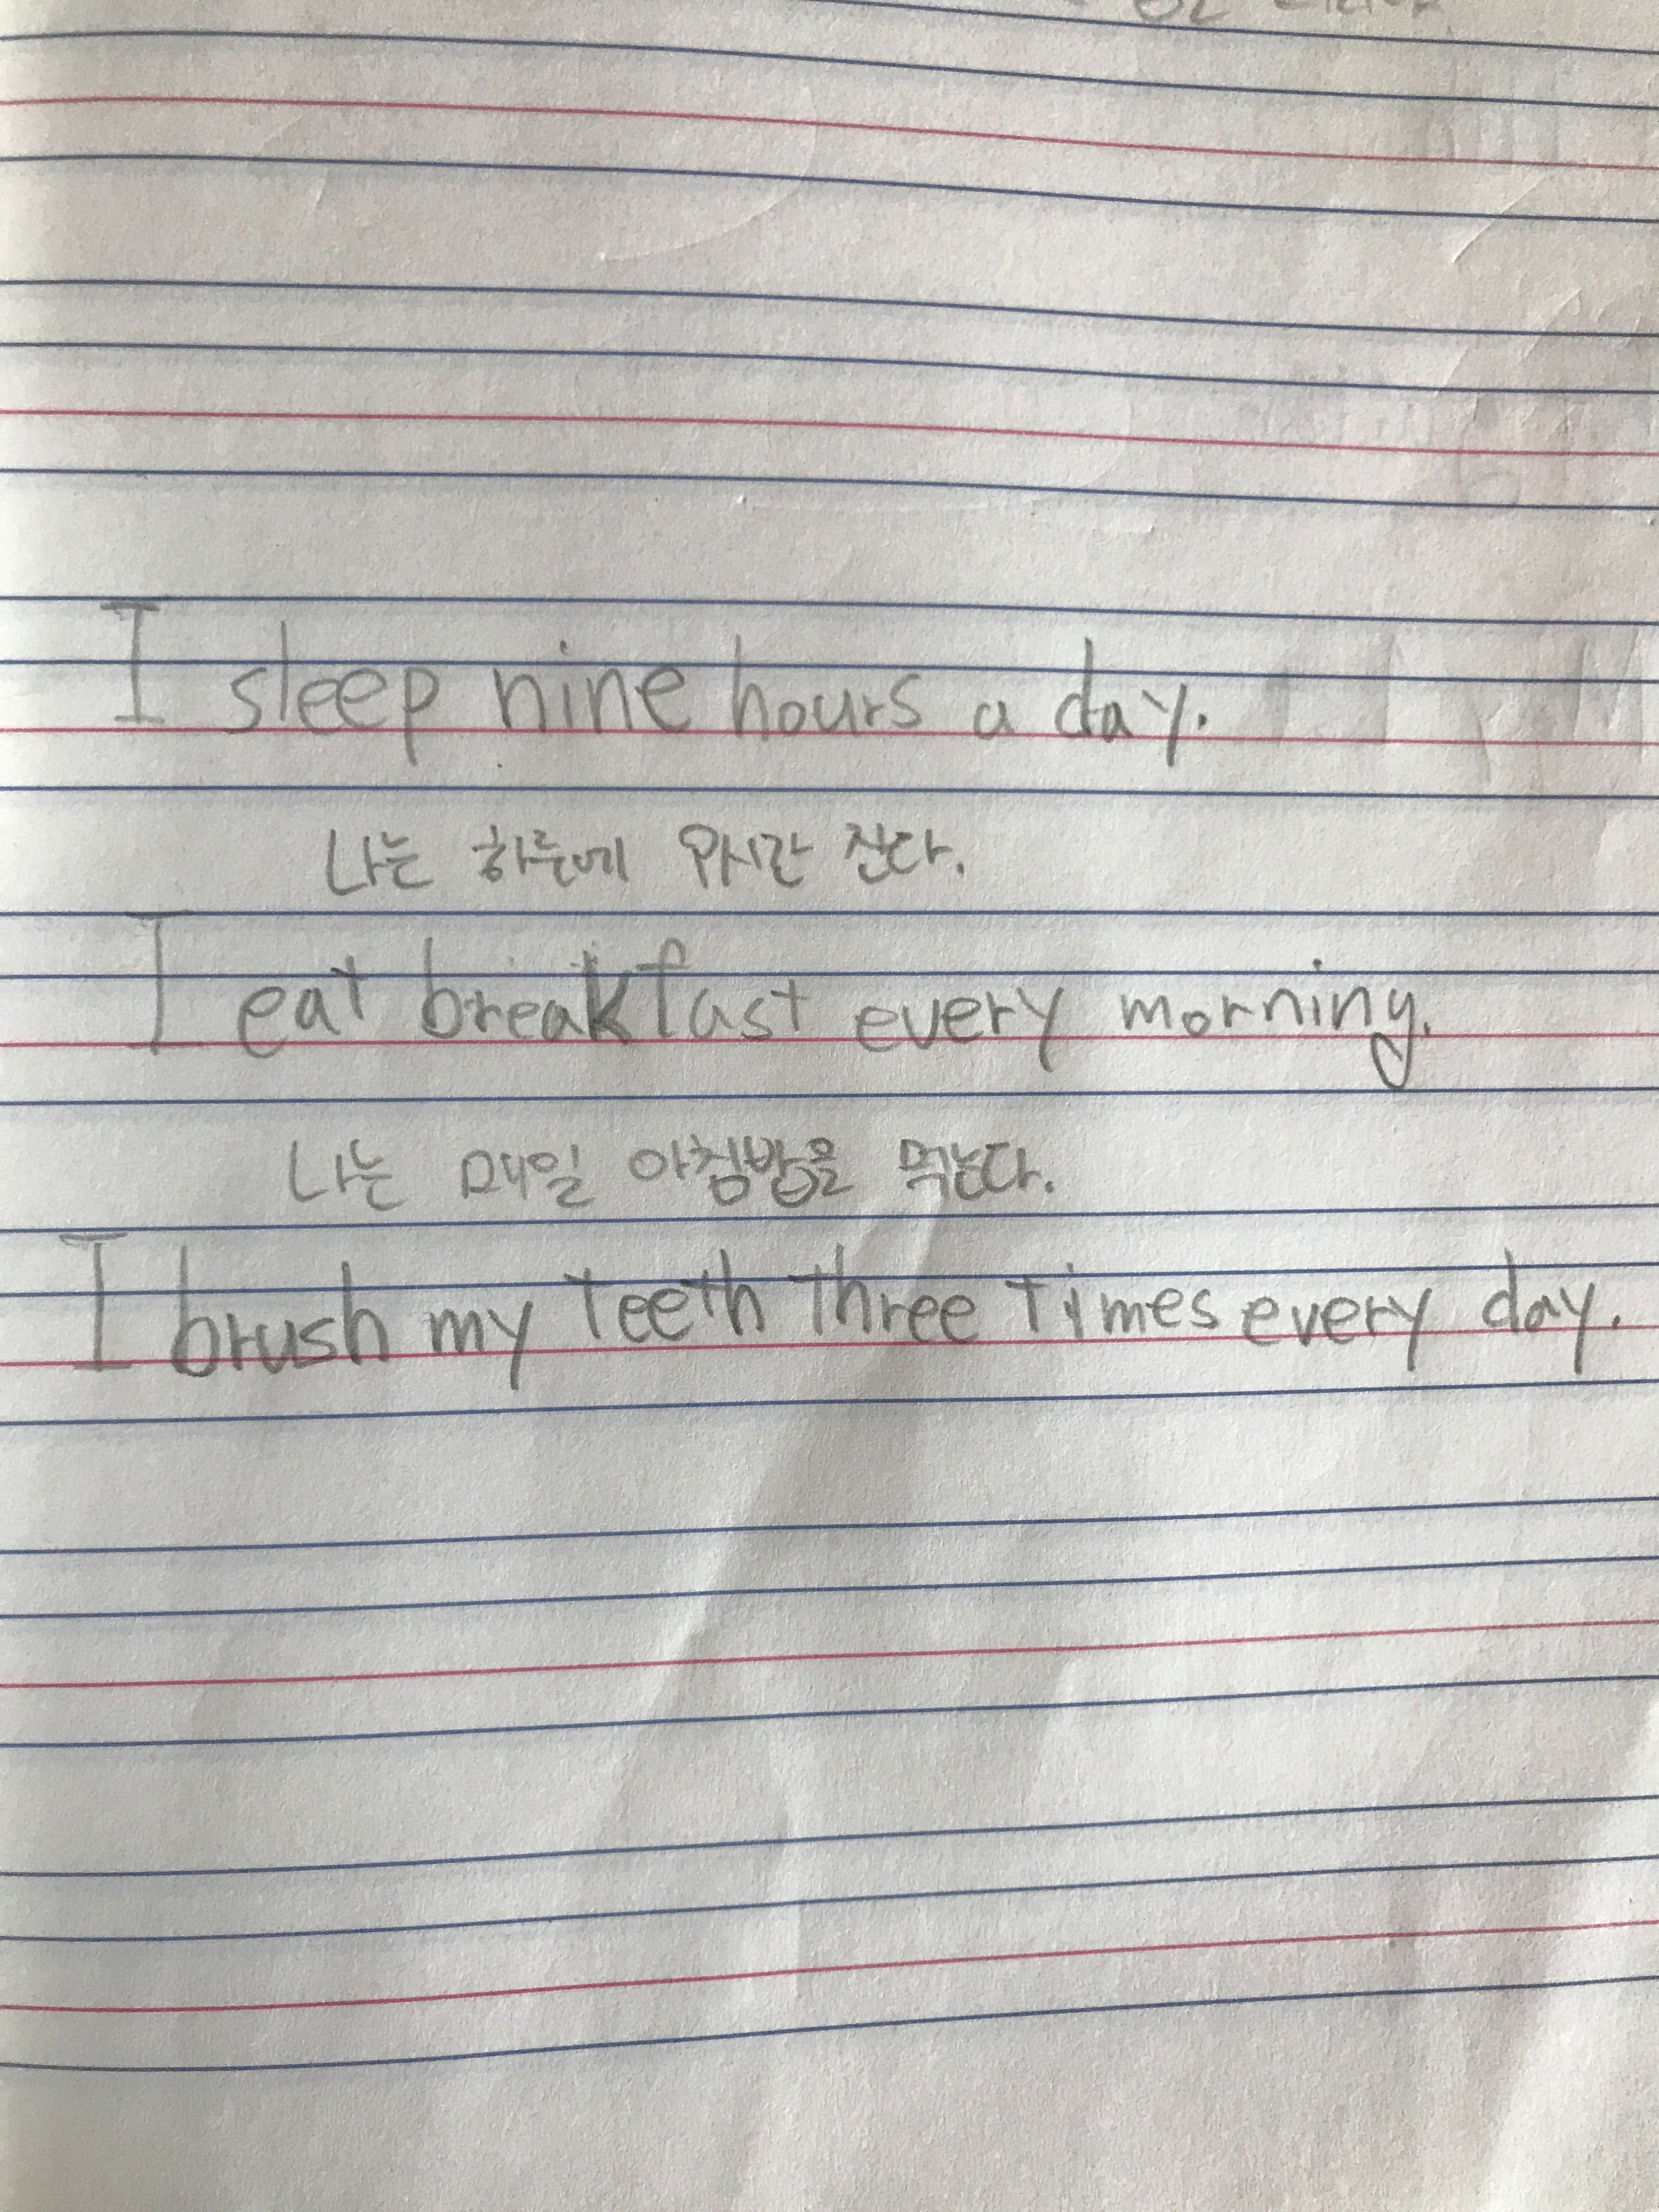 I sleep nine hours a day.
나는 하루에 9시간 잔다.
I eat breakfast every morning.
나는 매일 아침밥을 먹는다.
I brush my teeth three times every day.